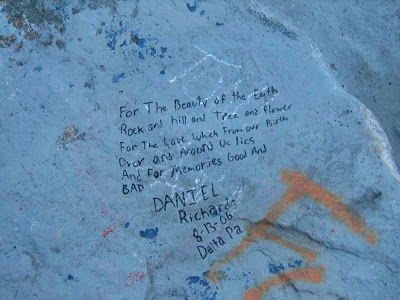 For The Beauty of the Earth
Rock and hill and Tree and Flower
For The Love Which From our Birth
Over and Around Us lies
And For Memories Good And
BAD
DANIEL
Richards
8-13-06
Delta Pa